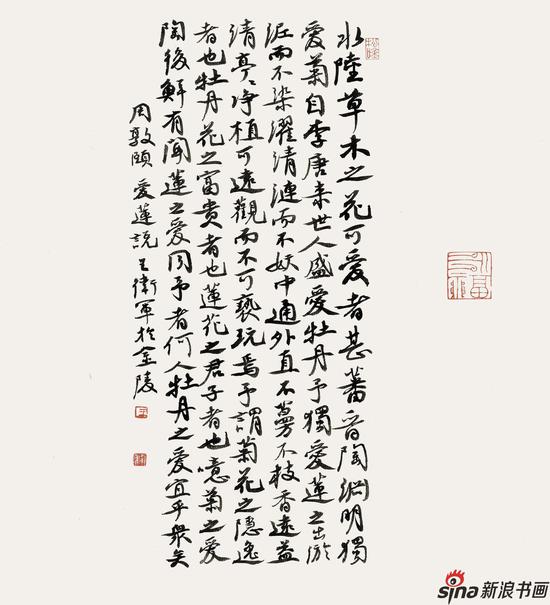 水陸草木之花可愛者甚蕃晉陶渊明獨
愛菊自李唐来世人盛愛牡丹予獨愛蓮之出淤
泥而不染濯清漣而不妖中通外直不蔓不枝香遠益
清亭〻净植可遠觀而不可褻玩焉予謂菊花之隱逸
者也牡丹花之富貴者也蓮花之君子者也噫菊之愛
陶後鮮有聞蓮之愛同予者何人牡丹之愛宜乎衆矣
周敦頤 愛蓮説 王衛軍於金陵
sina 新浪书画